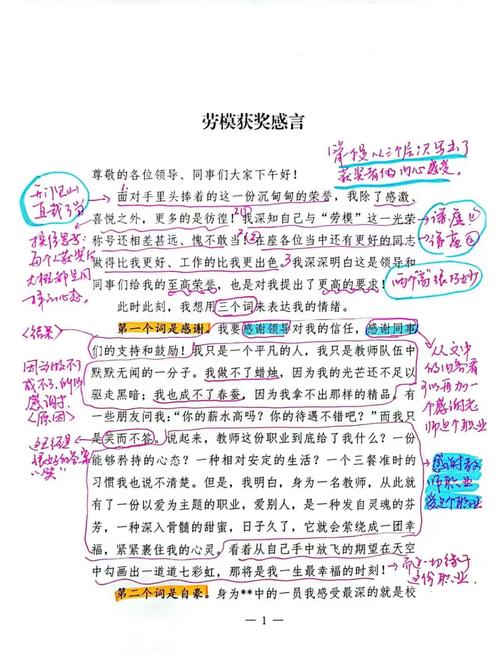 劳模获奖感言
第一段从三个层次写出了
获奖者的内心感受
尊敬的各位领导、同事们大家下午好！
开门见山
直截了当
面对手里头捧着的这一份沉甸甸的荣誉，我除了感激、
喜悦之外，更多的是彷徨！我深知自己与“劳模”这一光荣
称号还相差甚远、愧不敢当！在座各位当中还有更好的同志
做得比我更好、工作的比我更出色。我深深明白这是领导和
同事们给我的至高荣誉，也是对我提出了更高的要求！
谦虚①
谦虚②
换位思考
每个人获奖后
大概都是同
样的心态。
此时此刻，我想用三个词来表达我的情绪。
第一个词是感谢。我要感谢领导对我的信任，感谢同事
们的支持和鼓励！我只是一个平凡的人，我只是教师队伍中
默默无闻的一分子。我做不了蜡烛，因为我的光芒还不足以
驱走黑暗；我也成不了春蚕，因为我拿不出那样的精品。有
一些朋友问我：“你的薪水高吗？你的待遇不错吧？”而我只
是笑而不答。说起来，教师这份职业到底给了我什么？一份
能够矜持的心态？一种相对安定的生活？一个三餐准时的
习惯我也说不清楚。但是，我明白，身为一名教师，从此就
有了一份以爱为主题的职业，爱别人，是一种发自灵魂的芬
芳，一种深入骨髓的甜蜜，日子久了，它就会萦绕成一团幸
福，紧紧裹住我的心灵。看着从自己手中放飞的期望在天空
中勾画出一道道七彩虹，那将是我一生最幸福的时刻！
〈结果〉
因为做不了
成不了，所以
感谢
〈原因〉
可以再加一
个感谢老
师这个职业
感谢教
师职业
爱这个职业
一切缘于
这份职业.
第二个词是自豪。身为**中的一员我感受最深的就是校
— 1 —